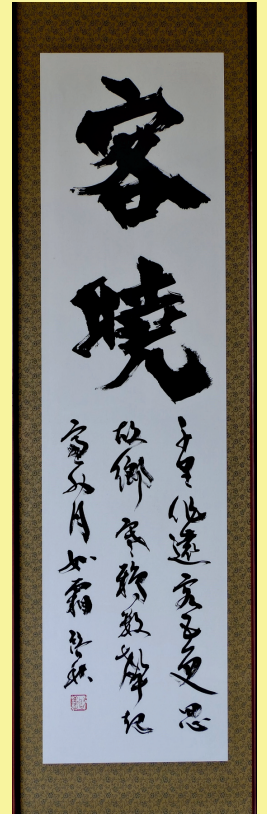 客曉
千里作遠客五更思
故鄉寒鴉數聲起
窗外月如霜